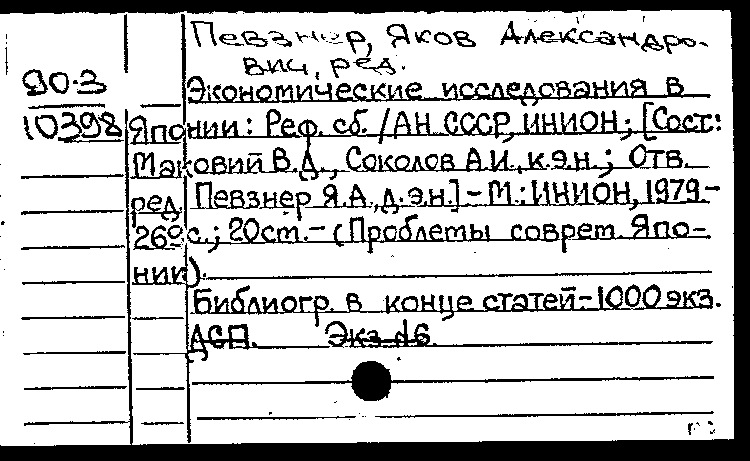 Певзнер, Яков Александро-
вич, ред.
90-3
Экономические исследования в
10398 Японии: Реф. сб. /АН СССР, ИНИОН; [Сост.:
Маковий В.Д., Соколов А.И., к.э.н.; Отв.
ред. Певзнер Я.А., д.э.н.] - М.: ИНИОН, 1979-
269с.; 20ст. - (Проблемы соврет. Япо-
нии).
Библиогр. в конце статей - 1000 экз.
ДСП. Экз. 16